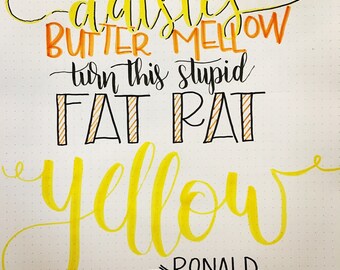 daisies
BUTTER MELLOW
turn this stupid
FAT RAT
yellow
RONALD